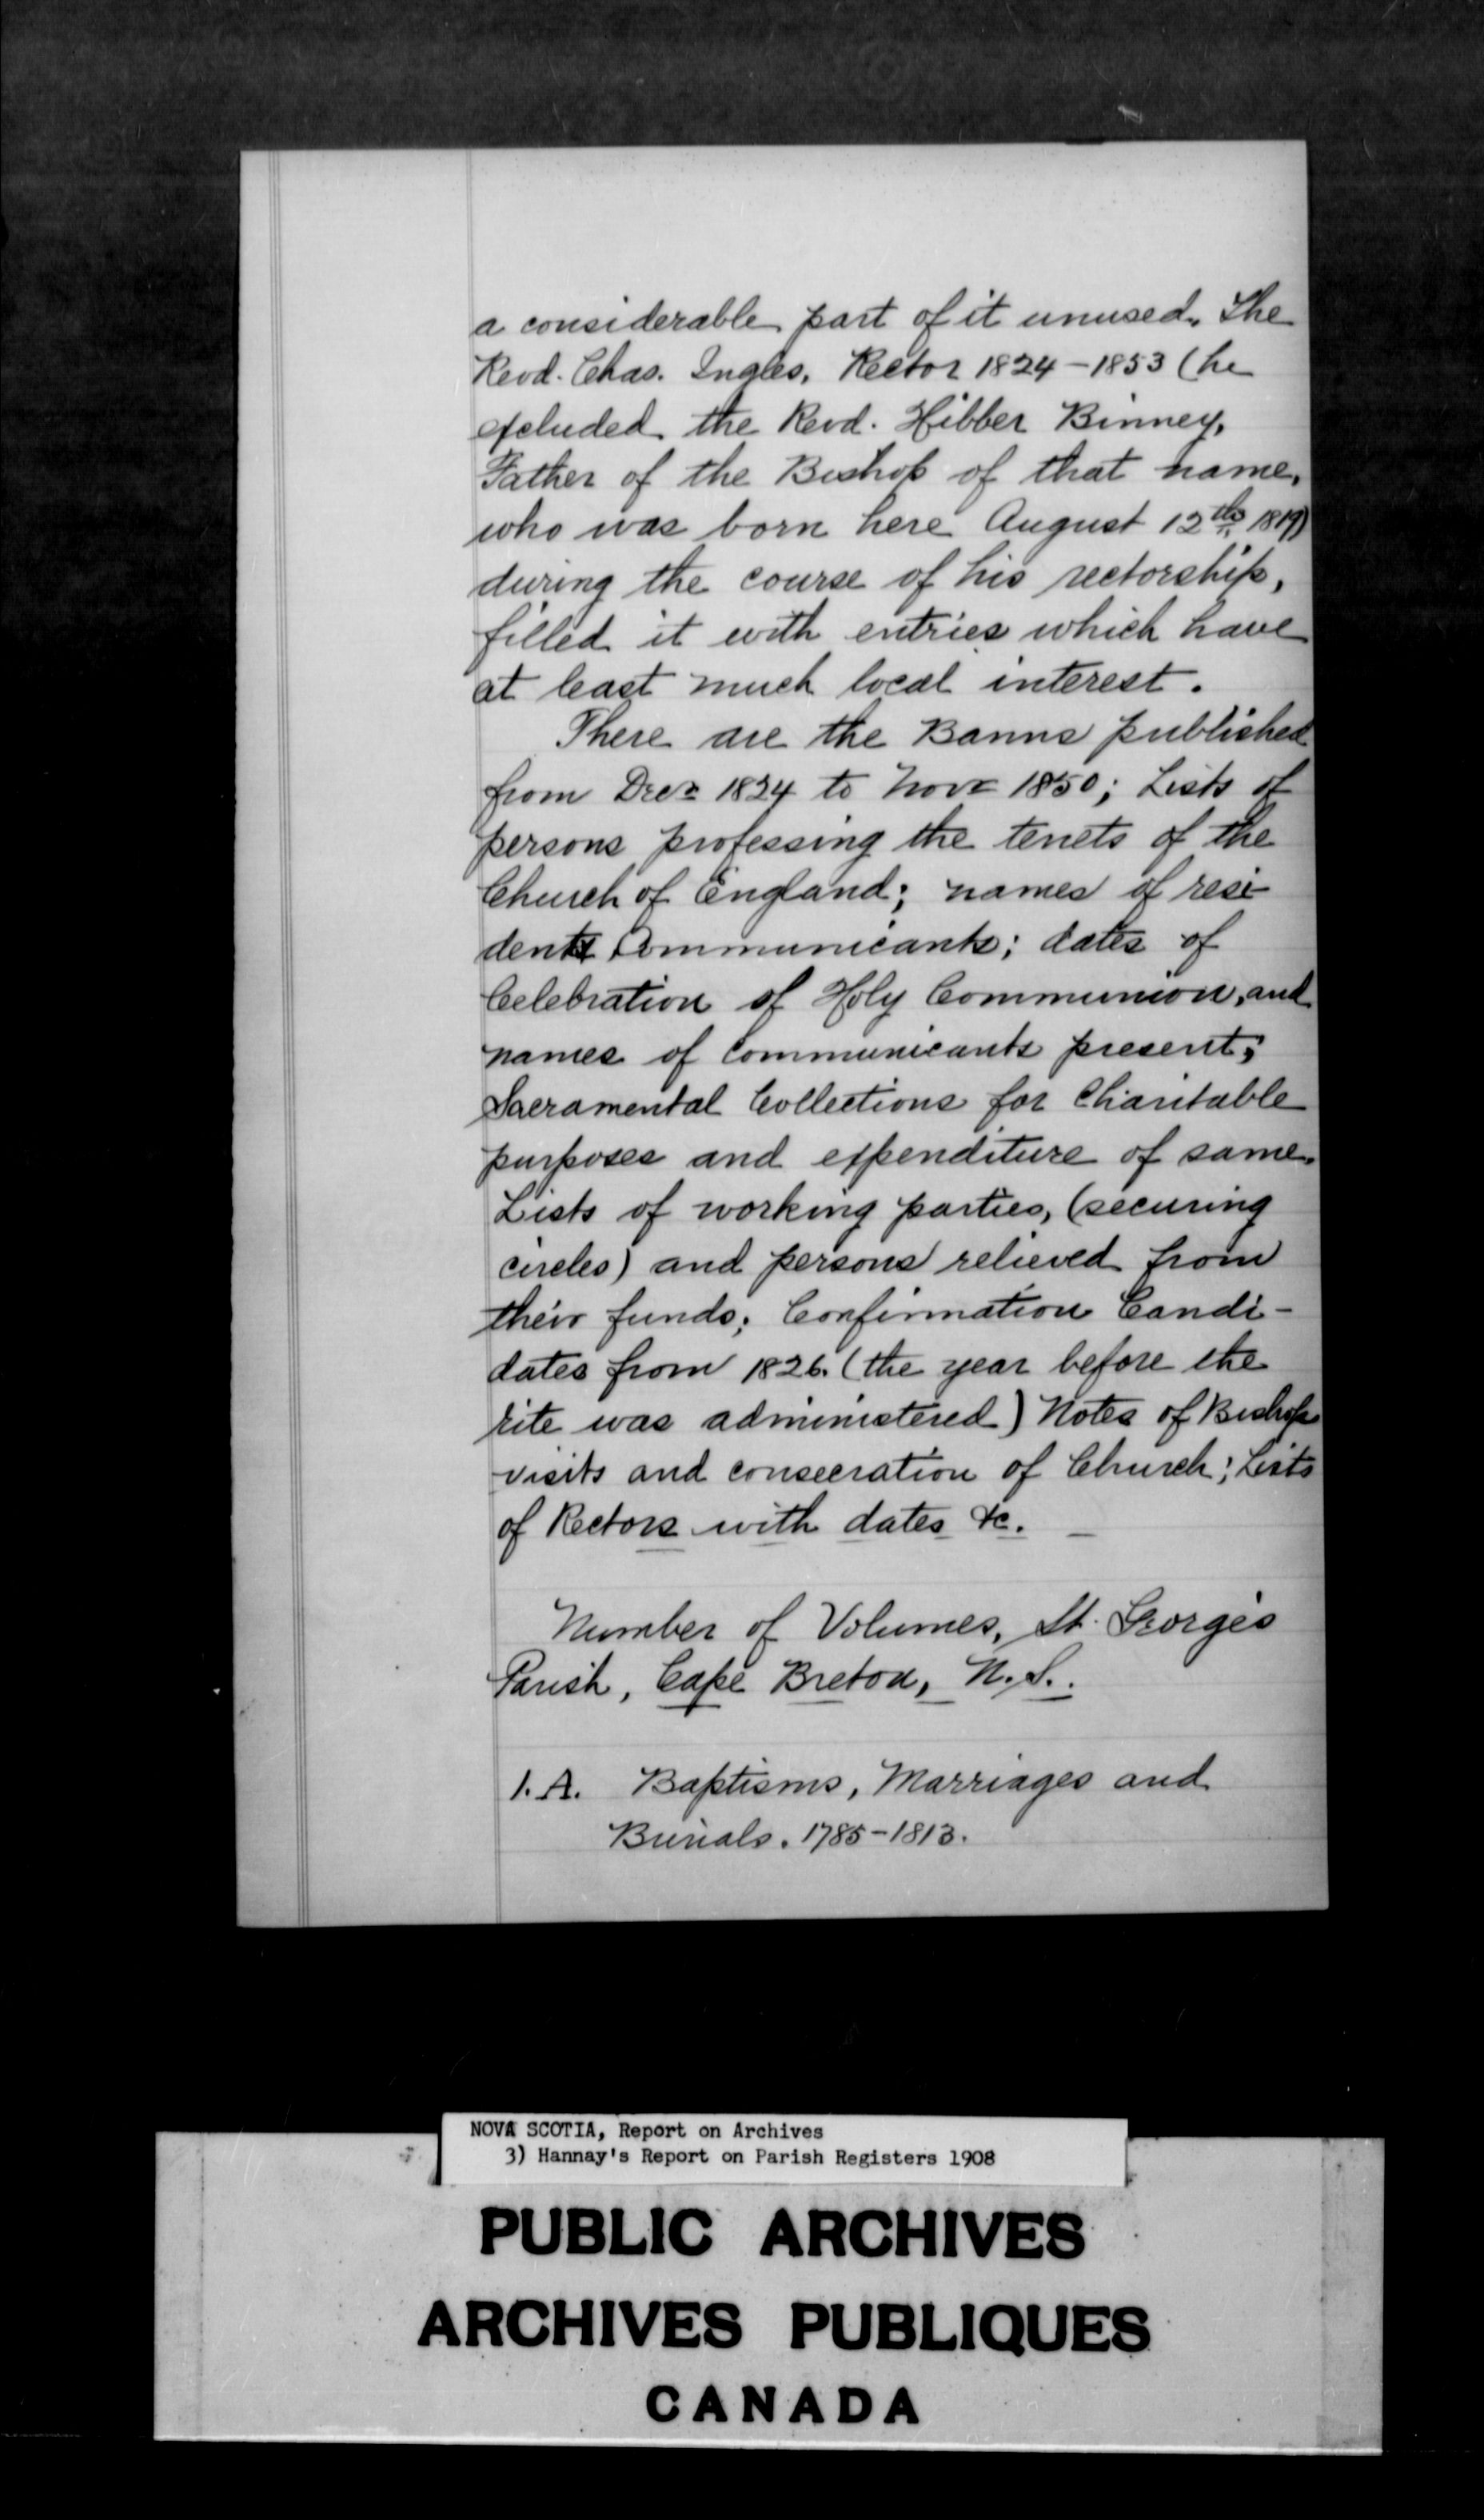 a considerable part of it unused. The
Revd. Chas. Ingles, Rector 1824-1853 (he
excluded the Revd. Hibber Binney,
Father of the Bishop of that name,
who was born here August 12th, 1819)
during the course of his rectorship,
filled it with entries which have
at least much local interest.
There are the Banns published
from Decr 1824 to Novr 1850; Lists of
persons professing the tenets of the
Church of England; names of resi-
dent Communicants; dates of
Celebration of Holy Communion, and
names of Communicants present;
Sacramental Collections for Charitable
purposes and expenditure of same.
Lists of working parties, (securing
circles) and persons relieved from
their funds; Confirmation Candi-
dates from 1826. (the year before the
rite was administered) Notes of Bishops
visits and consecration of Church; Lists
of Rectors with dates &c. —
Number of Volumes, St. George's
Parish, Cape Breton, N.S..
1.A. Baptisms, Marriages and
Burials. 1785-1813.
NOVA SCOTIA, Report on Archives
3) Hannay's Report on Parish Registers 1908
PUBLIC ARCHIVES
ARCHIVES PUBLIQUES
CANADA